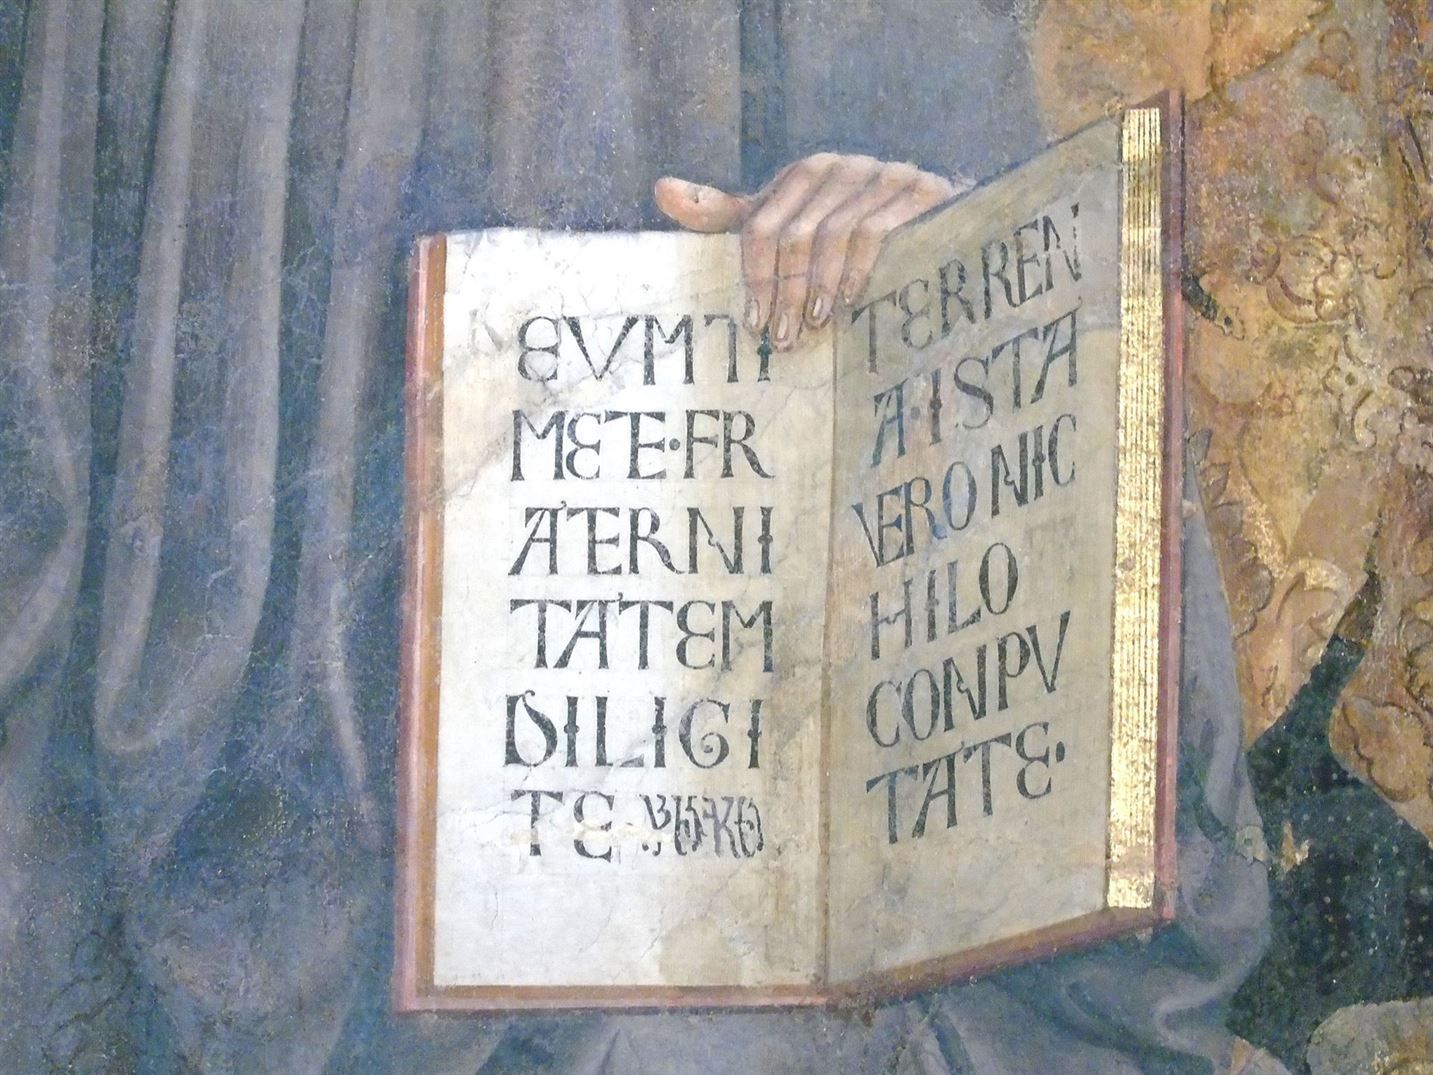 EVM TI
METE·FR
ATERNI
TATEM
DILIGI
TE
TERREN
A·ISTA
VERO NIC
HILO
CONPV
TATE·